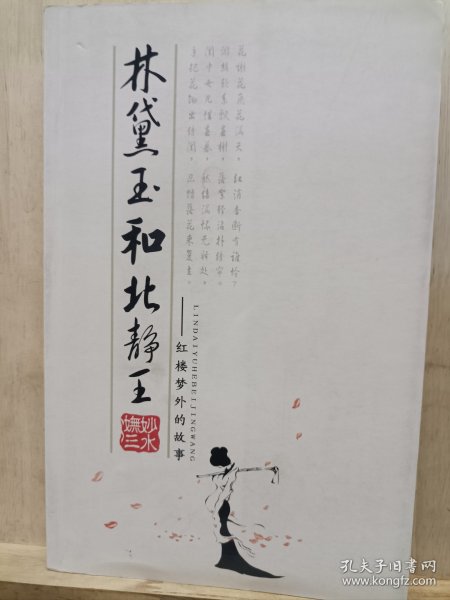 林黛玉和北静王
妙水
嫵三
花谢花飞花满天，红消香断有谁怜？
游丝软系飘春榭，落絮轻沾扑绣帘。
闺中女儿惜春暮，愁绪满怀无释处，
手把花锄出绣闺，忍踏落花来复去。
LINDAIYUHEBEIJINGWANG
——红楼梦外的故事
孔夫子旧书网
www.kongfz.com